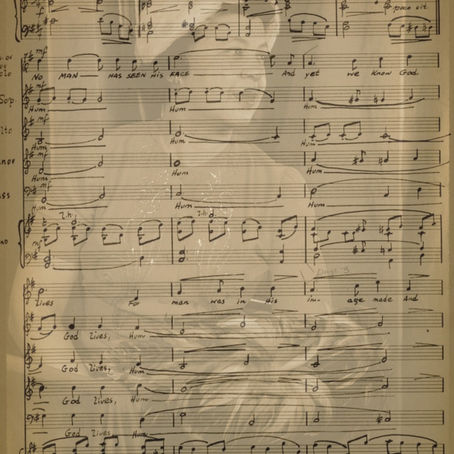 poco rit
mf
No MAN HAS SEEN HIS FACE And yet we know God.
Sop
mf
Hum Hum Hum
mf
Hum Hum Hum
mf
Hum
mf
Hum Hum Hum
mf
Lives For man was in His im- age made And
God Lives, Hum
God Lives, Hum
God Lives, Hum
God Lives Hum